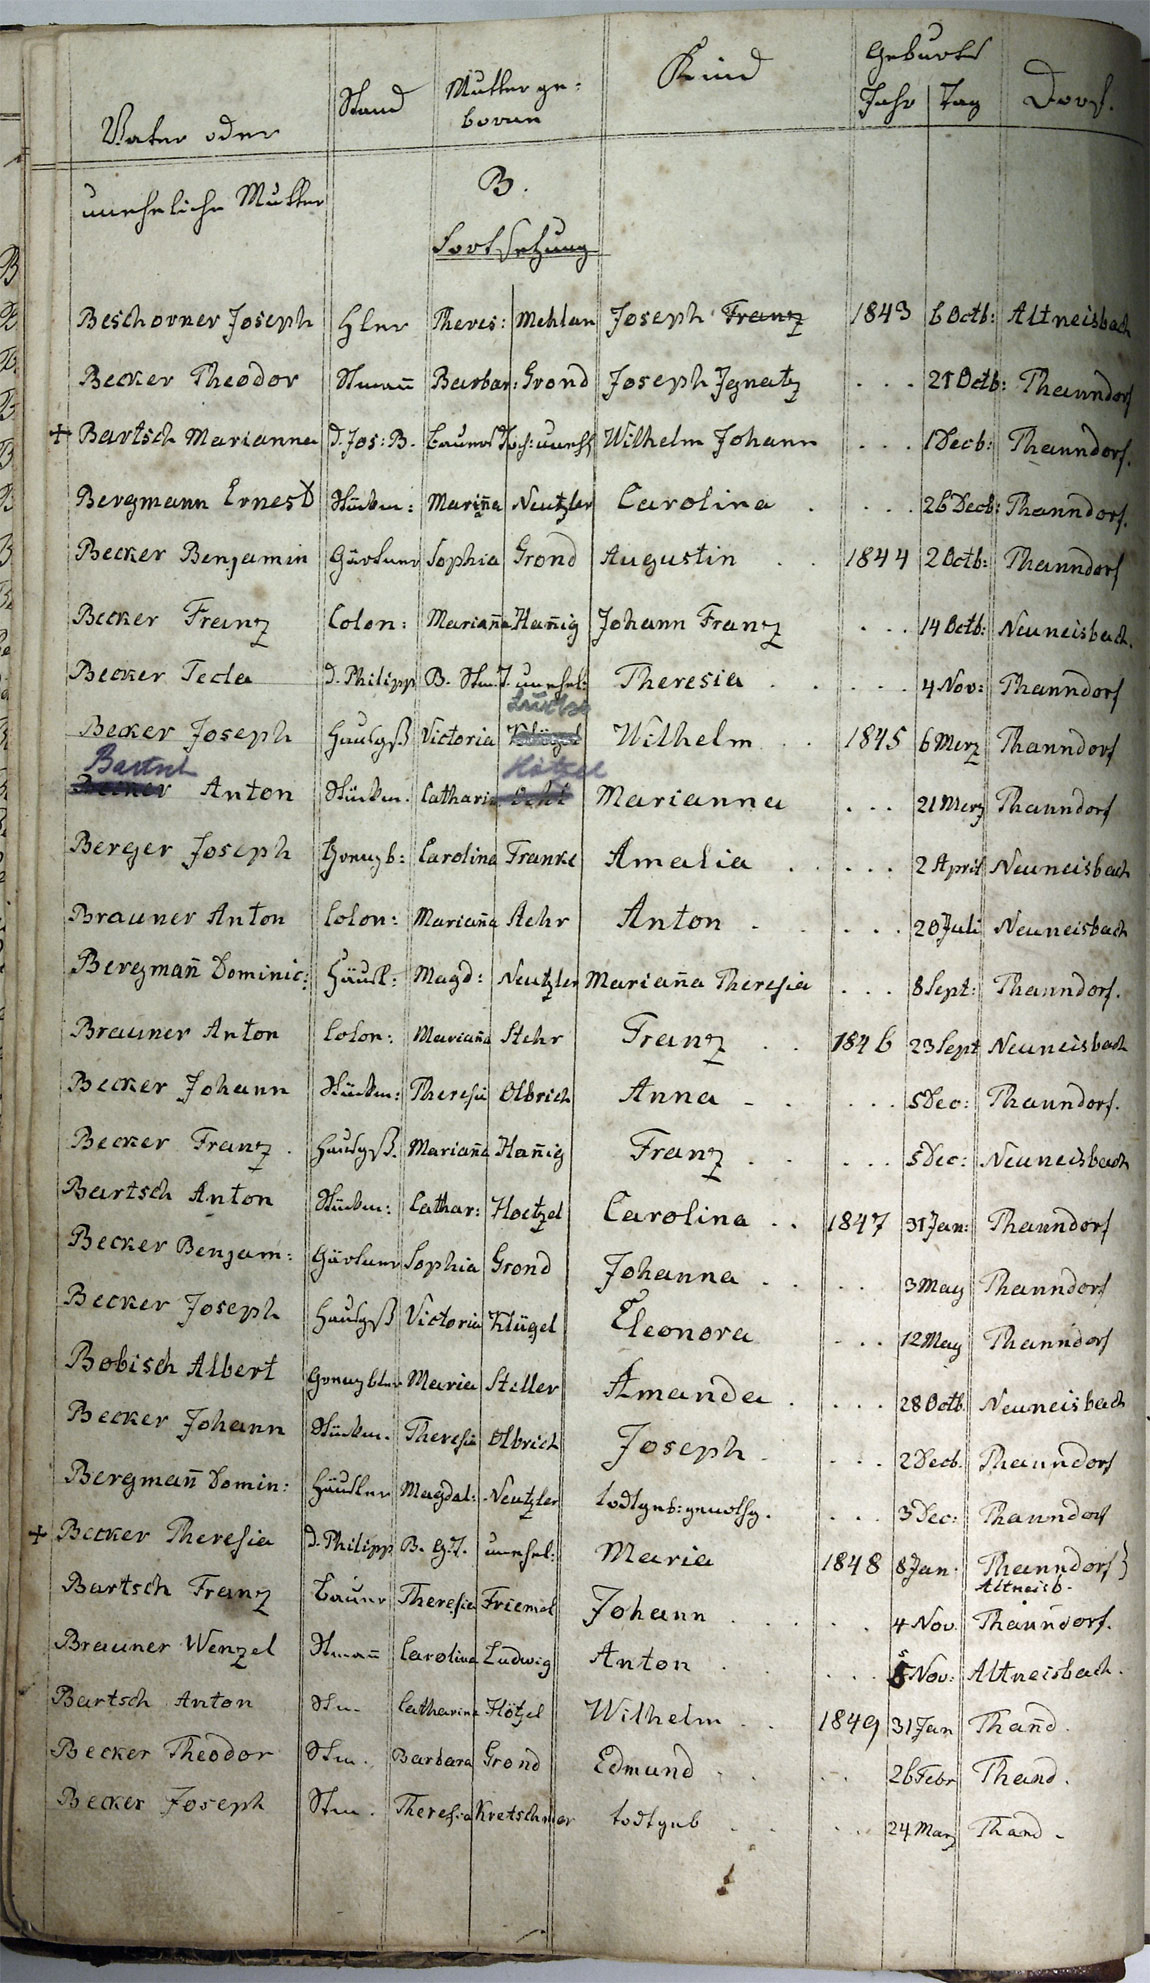 Vater oder Stand Mutter ge= Kind Geburts Dorf.
boren Jahr Tag
uneheliche Mutter B.
Fortsetzung
Beschorner Joseph Hler Theres: Mehlan Joseph Franz 1843 6 Octb: Altneisbach
Becker Theodor Stmañ Barbar: Grond Joseph Ignatz . . . 21 Octb: Thanndorf
+ Bartsch Marianna d. Jos: B. Bauers Toch: unehl Wilhelm Johann . . . 1 Decb: Thanndorf.
Bergmann Ernest Stückm: Mariña Neutzler Carolina . . . . 26 Decb: Thanndorf.
Becker Benjamin Gärtner Sophia Grond Augustin . . 1844 2 Octb: Thanndorf
Becker Franz Colon: Mariaña Hañig Johann Franz . . . 14 Octb: Neuneisbach.
Becker Tecla d. Philipp B. Stm. T. unehel: Theresia . . . . . 4 Nov: Thanndorf
Becker Joseph Hausgß Victoria Klügel Wilhelm . . 1845 6 Merz Thanndorf
Bartsch Hötzel
Becker Anton Stückm. Catharin Marianna . . . 21 Merz Thanndorf
Berger Joseph Grenzb: Carolina Franke Amalia . . . . . 2 April Neuneisbach
Brauner Anton Colon: Mariaña Stehr Anton . . . . . 20 Juli Neuneisbach
Bergmañ Dominic: Häusl: Magd: Neutzler Mariaña Theresia . . . 8 Sept: Thanndorf.
Brauner Anton Colon: Mariaña Stehr Franz . . 1846 23 Sept Neuneisbach
Becker Johann Stückm: Theresia Olbrich Anna - . . . . 5 Dec: Thanndorf.
Becker Franz . Hausgß. Mariaña Hañig Franz . . . . . 5 Dec: Neuneisbach
Bartsch Anton Stückm: Cathar: Hoetzel Carolina . . 1847 31 Jan: Thanndorf
Becker Benjam: Gärtner Sophia Grond Johanna . . . . 3 May Thanndorf
Becker Joseph Hausgß Victoria Klügel Eleonora . . . 12 May Thanndorf
Bobisch Albert Grenzbler Maria Steller Amanda . . . . 28 Octb. Neuneisbach
Becker Johann Stückm. Theresia Olbrich Joseph . . . . 2 Decb. Thanndorf
Bergmañ Domin: Häusler Magdal: Neutzler todtgeb: . . . 3 Dec: Thanndorf
+ Becker Theresia d. Philipp B. G. T. unehel: Maria 1848 8 Jan. Thanndorf}
Altneisb.
Bartsch Franz Bauer Theresia Friemel Johann . . . . 4 Nov. Thanndorf.
Brauner Wenzel Stmañ Carolina Ludwig Anton . . . . . 5 Nov: Altneisbach.
Bartsch Anton Stm. Catharina Hötzel Wilhelm . . 1849 31 Jan Thañd.
Becker Theodor Stm. Barbara Grond Edmund . . . . 26 Febr Thand.
Becker Joseph Stm. Theresia Kretschmer todtgeb . . . . 24 Marz Thand.